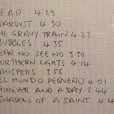 FEAR 4.39
STARDUST 4.30
THE GRAVY TRAIN 4.23
BUBBLES 4.35
HEAR NO SEE NO 3.30
NORTHERN LIGHTS 4.14
WHISPERS 3.56
EL MUNDO PEQUEÑO 4.01
FOREVER AND A DAY 3.44
SHADOW OF A SAINT 4.4